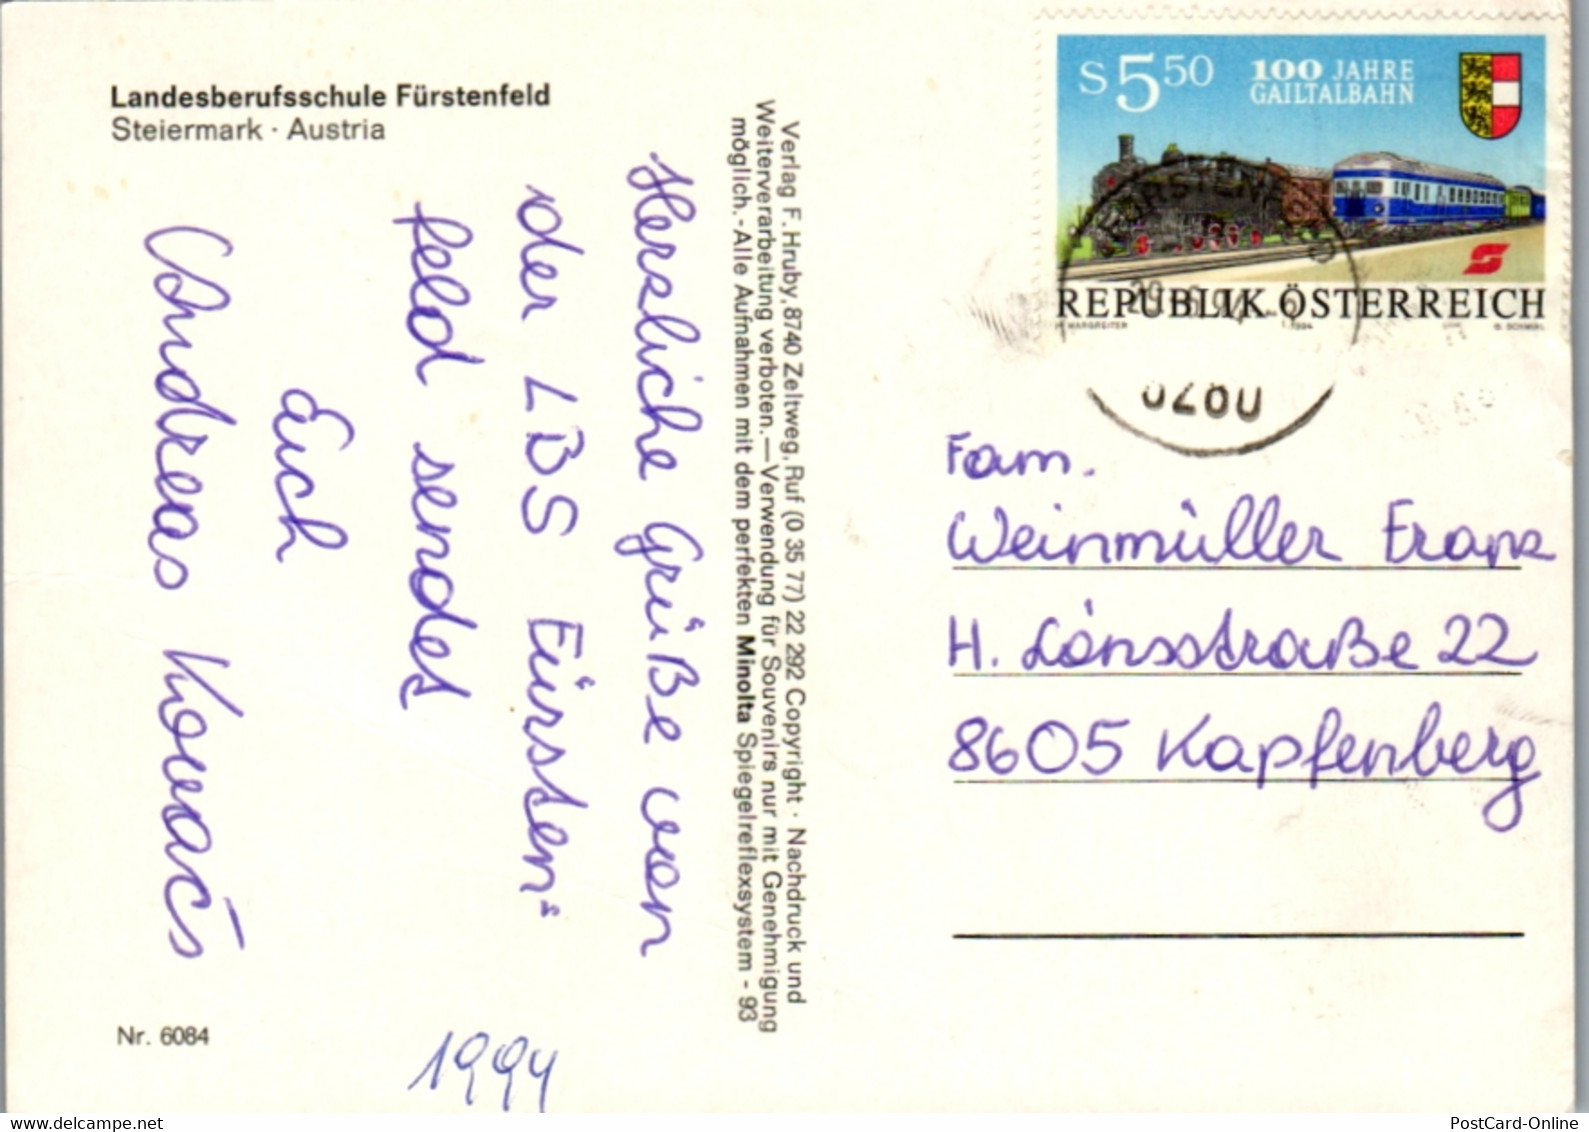 Landesberufsschule Fürstenfeld
Steiermark · Austria
Herzliche Grüße von
der LBS Fürsten"
feld sendet
Euch
Andreas Kovač
1994
Nr. 6084
Verlag F. Hruby, 8740 Zeltweg, Ruf (0 35 77) 22 292 Copyright · Nachdruck und
Weiterverarbeitung verboten.—Verwendung für Souvenirs nur mit Genehmigung
möglich.-Alle Aufnahmen mit dem perfekten Minolta Spiegelreflexsystem - 93
S 5 50
100 JAHRE
GAILTALBAHN
REPUBLIK ÖSTERREICH
MARGREITER
1994
Fam.
Weinmüller Franz
H. Lönsstraße 22
8605 Kapfenberg
PostCard-Online